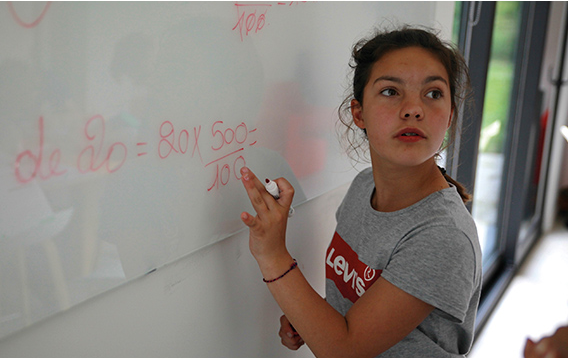 100
de 20 = 20 x 500 =
100
Levi's